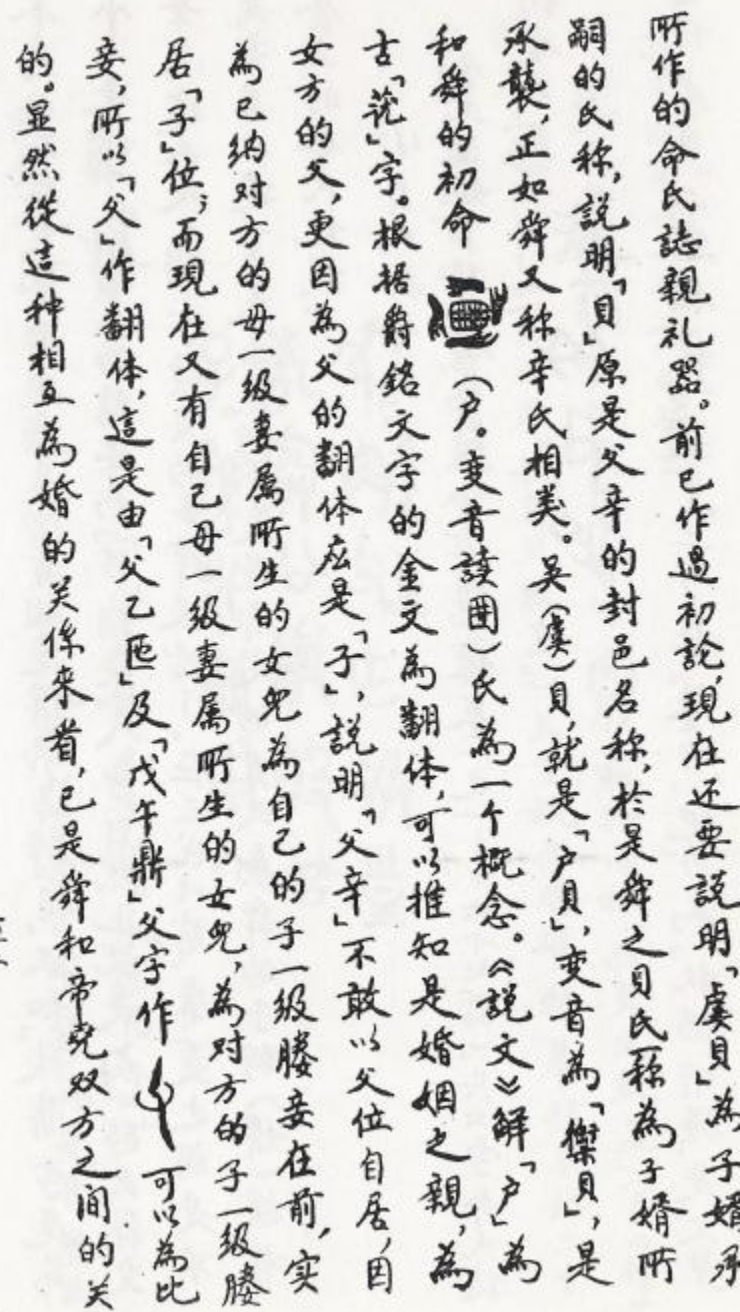 所作的命氏誌親礼器。前已作過初論,現在还要説明「虞貝」為子婿承
嗣的氏称,説明「貝」原是父辛的封邑名称,於是舜之貝氏称為子婿所
承襲,正如舜又称辛氏相类。吴(虞)貝,就是「户貝」,变音為「櫸貝」,是
和舜的初命(户。变音讀囲)氏為一个概念。《説文》解「户」為
古「㡿」字。根据爵銘文字的金文為翻体,可以推知是婚姻之親,為
女方的父,更因為父的翻体应是「子」,説明「父辛」不敢以父位自居,因
為已納对方的母一級妻属所生的女兒為自己的子一級媵妾在前,实
居「子」位;而現在又有自己母一級妻属所生的女兒,為对方的子一級媵
妾,所以「父」作翻体,這是由「父乙匜」及「戊午鼎」父字作 可以為比
的。显然從這种相互為婚的关係來看,已是舜和帝尧双方之间的关